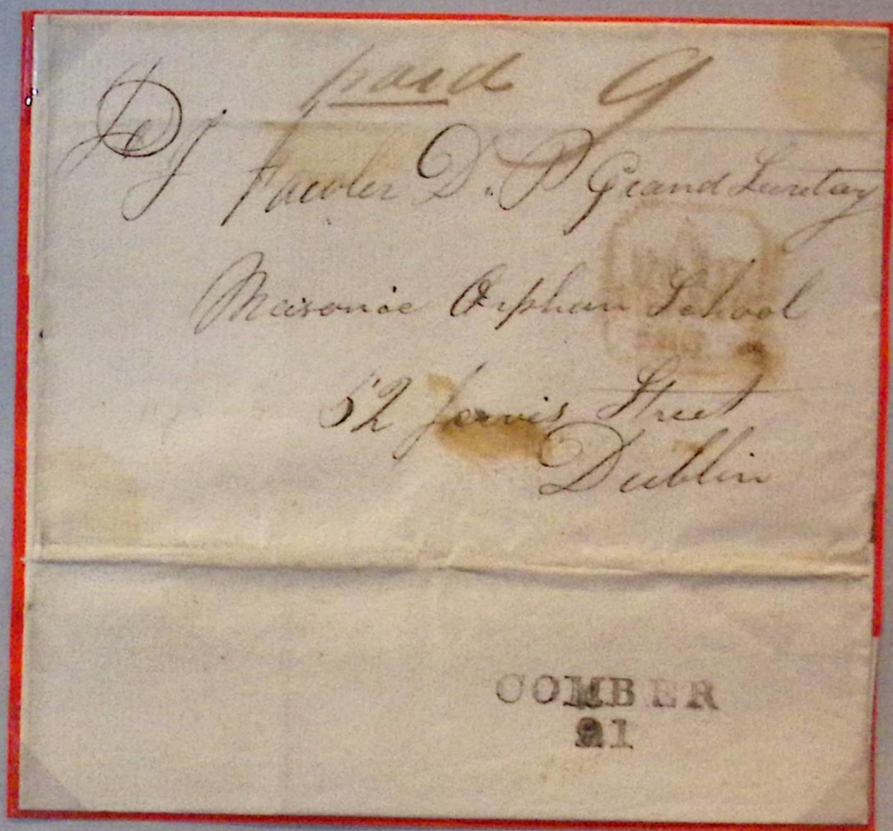 paid 9
To J Fowler D. P Grand Secretary
Masonic Orphan School
52 Jervis Street
Dublin
COMBER
91